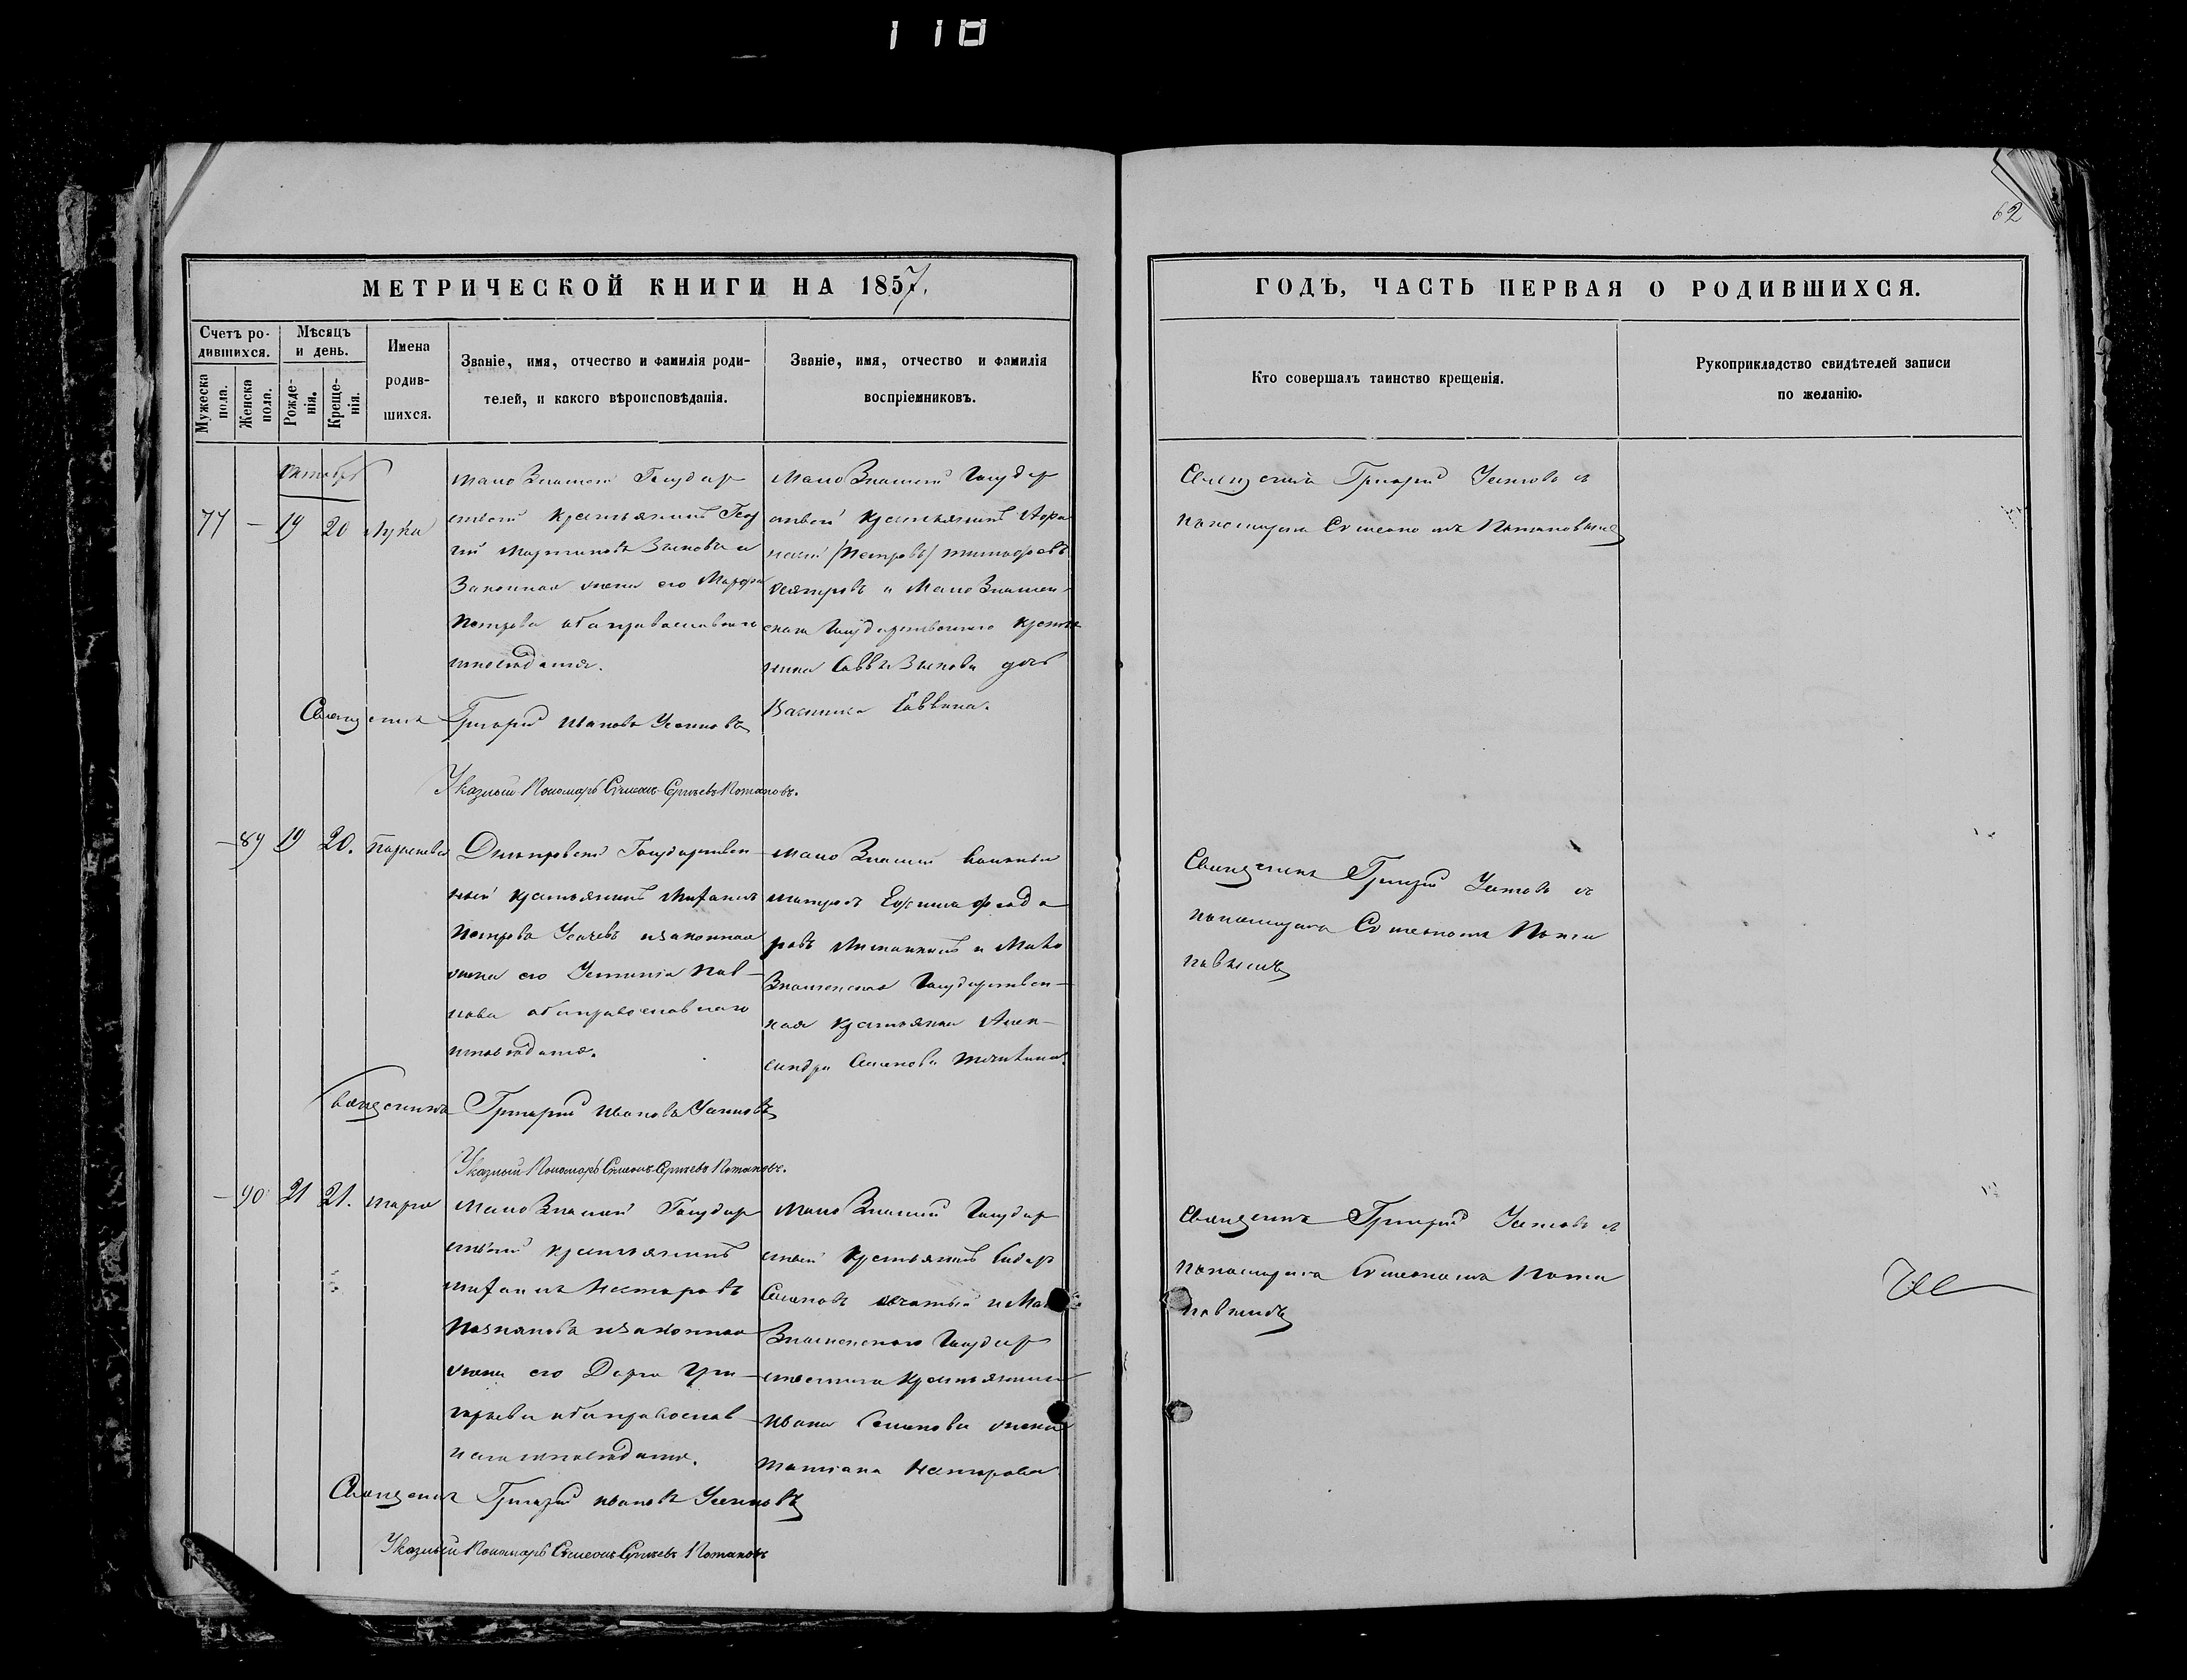 118
62
МЕТРИЧЕСКОЙ КНИГИ НА 1857.
ГОДЪ, ЧАСТЬ ПЕРВАЯ О РОДИВШИХСЯ.
Счетъ родившихся.
Мужеска пола.
Женска пола.
Мѣсяцъ и день.
Рожденія.
Крещенія.
Имена родившихся.
Званіе, имя, отчество и фамилія роди-
телей, и какого вѣроисповѣданія.
Званіе, имя, отчество и фамилія
воспріемниковъ.
Кто совершалъ таинство крещенія.
Рукоприкладство свидѣтелей записи
по желанію.
Октября
77 — 19 20 Лука
Мало Знаменск Государ
ствен крестьянинъ
Мартиновъ Зыковъ и
Законная жена его Марфа
Петрова оба православнаго
исповѣданія.
Мало Знаменск Государ
ствен крестьянинъ
(Петровъ) Тимофеевъ
и Мало Знамен
скаго Государственнаго крестья
нина Саввы Зыкова дочь
Саввина.
Священникъ Григорій Усиновъ съ
пономаремъ Симеономъ Потаповымъ
Священникъ Григорій Ивановъ Усиновъ
Указный Пономарь Симеонъ Сергѣевъ Потаповъ.
— 89 19 20. Параскева
Днепровскій Государствен
ный крестьянинъ Михаилъ
Петровъ Усачевъ и законная
жена его Устинія Пав
лова оба православнаго
исповѣданія.
Мало Знаменск
матросъ Ефимъ Федо
ровъ и Мало
Знаменская Государствен
ная крестьянка Алек
сандра Семенова
Священникъ Григорій Усиновъ съ
пономаремъ Симеономъ Пота
повымъ
Священникъ Григорій Ивановъ Усиновъ
Указный Пономарь Симеонъ Сергѣевъ Потаповъ.
— 90 21 21. Марія
Мало Знаменск Государ
ственный крестьянинъ
Михаилъ Несторовъ
и законная
жена его Дарья Гри
горьева оба православ
наго исповѣданія.
Мало Знаменск Государ
ственый крестьянинъ Сидор
Семеновъ и Мало
Знаменскаго Государ
ственнаго крестьянина
Ивана Семенова жена
Татіана Несторова
Священникъ Григорій Усиновъ съ
пономаремъ Симеономъ Пота
повымъ
Священникъ Григорій Ивановъ Усиновъ
Указный Пономарь Симеонъ Сергѣевъ Потаповъ